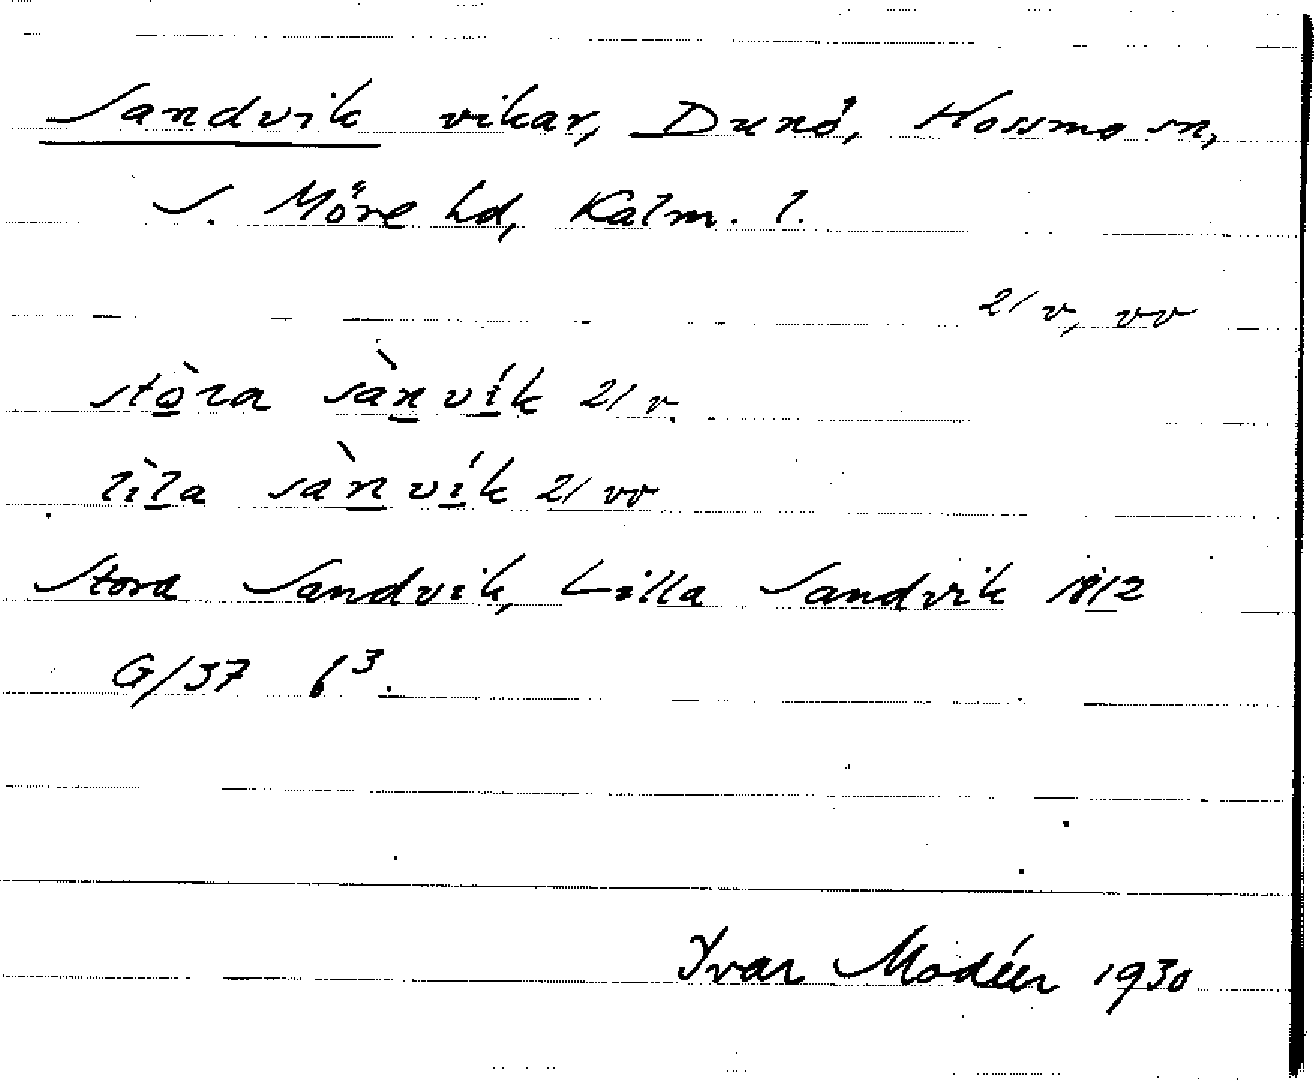 Sandvik vikar, Dunö, Hossmo sn,
S. Möre hd, Kalm. l.
2/ v, vv
stòra sànvík 2/ v.
lìla sànvík 2/ vv
Stora Sandvik, Lilla Sandvik 1812
G/37 6³.
Ivar Modéer 1930